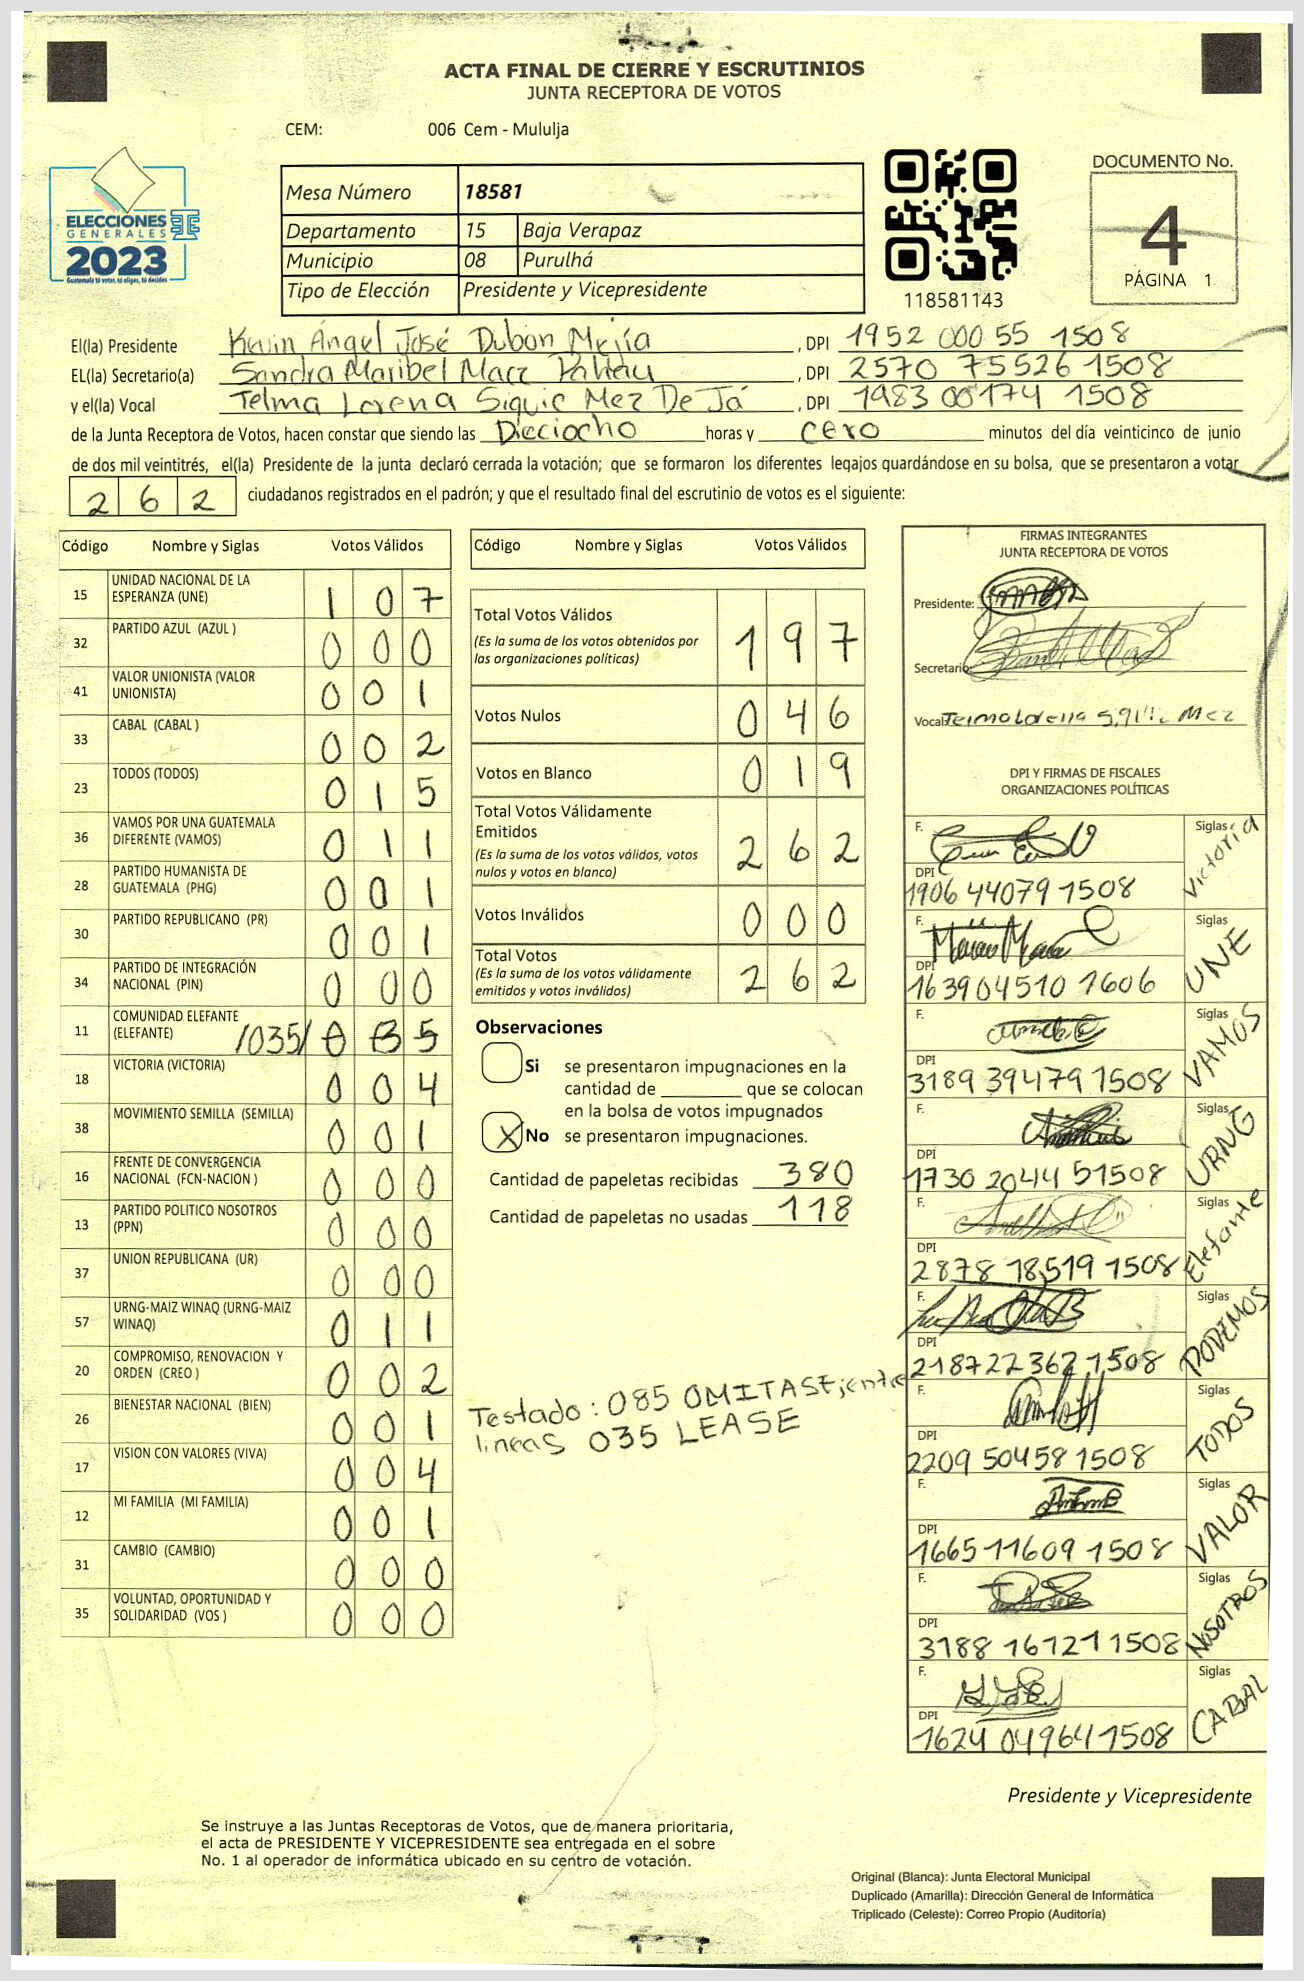 ACTA FINAL DE CIERRE Y ESCRUTINIOS
JUNTA RECEPTORA DE VOTOS
CEM: 006 Cem - Mululja
ELECCIONES
GENERALES
2023
Guatemala tú votas, tú eliges, tú decides
Mesa Número 18581
Departamento 15 Baja Verapaz
Municipio 08 Purulhá
Tipo de Elección Presidente y Vicepresidente
118581143
DOCUMENTO No.
4
PÁGINA 1
El(la) Presidente Kevin Ángel José Dubón Mejía, DPI 1952 000 55 1508
EL(la) Secretario(a) Sandra Maribel Macz, DPI 2570 75526 1508
y el(la) Vocal Telma Lorena Siquic Mez De Já, DPI 1983 00174 1508
de la Junta Receptora de Votos, hacen constar que siendo las Dieciocho horas y cero minutos del día veinticinco de junio
de dos mil veintitrés, el(la) Presidente de la junta declaró cerrada la votación; que se formaron los diferentes legajos guardándose en su bolsa, que se presentaron a votar
262 ciudadanos registrados en el padrón; y que el resultado final del escrutinio de votos es el siguiente:
Código Nombre y Siglas Votos Válidos
15 UNIDAD NACIONAL DE LA ESPERANZA (UNE) 1 0 7
32 PARTIDO AZUL (AZUL ) 0 0 0
41 VALOR UNIONISTA (VALOR UNIONISTA) 0 0 1
33 CABAL (CABAL ) 0 0 2
23 TODOS (TODOS) 0 1 5
36 VAMOS POR UNA GUATEMALA DIFERENTE (VAMOS) 0 1 1
28 PARTIDO HUMANISTA DE GUATEMALA (PHG) 0 0 1
30 PARTIDO REPUBLICANO (PR) 0 0 1
34 PARTIDO DE INTEGRACIÓN NACIONAL (PIN) 0 0 0
11 COMUNIDAD ELEFANTE (ELEFANTE) /035/ 0 8 5
18 VICTORIA (VICTORIA) 0 0 4
38 MOVIMIENTO SEMILLA (SEMILLA) 0 0 1
16 FRENTE DE CONVERGENCIA NACIONAL (FCN-NACION ) 0 0 0
13 PARTIDO POLITICO NOSOTROS (PPN) 0 0 0
37 UNION REPUBLICANA (UR) 0 0 0
57 URNG-MAIZ WINAQ (URNG-MAIZ WINAQ) 0 1 1
20 COMPROMISO, RENOVACION Y ORDEN (CREO ) 0 0 2
26 BIENESTAR NACIONAL (BIEN) 0 0 1
17 VISION CON VALORES (VIVA) 0 0 4
12 MI FAMILIA (MI FAMILIA) 0 0 1
31 CAMBIO (CAMBIO) 0 0 0
35 VOLUNTAD, OPORTUNIDAD Y SOLIDARIDAD (VOS ) 0 0 0
Código Nombre y Siglas Votos Válidos
Total Votos Válidos 1 9 7
(Es la suma de los votos obtenidos por
las organizaciones políticas)
Votos Nulos 0 4 6
Votos en Blanco 0 1 9
Total Votos Válidamente
Emitidos 2 6 2
(Es la suma de los votos válidos, votos
nulos y votos en blanco)
Votos Inválidos 0 0 0
Total Votos 2 6 2
(Es la suma de los votos válidamente
emitidos y votos inválidos)
Observaciones
Si se presentaron impugnaciones en la
cantidad de ________ que se colocan
en la bolsa de votos impugnados
X No se presentaron impugnaciones.
Cantidad de papeletas recibidas 380
Cantidad de papeletas no usadas 118
Testado: 085 OMITASE; entre
líneas 035 LEASE
FIRMAS INTEGRANTES
JUNTA RECEPTORA DE VOTOS
Presidente:
Secretario:
Vocal: Telma Lorena Mez
DPI Y FIRMAS DE FISCALES
ORGANIZACIONES POLÍTICAS
F. Siglas Victoria
DPI
1906 44079 1508
F. Siglas UNE
DPI
1639045101606
F. Siglas VAMOS
DPI
3189 39479 1508
F. Siglas URNG
DPI
1730 2044 51508
F. Siglas Elefante
DPI
2878 18519 1508
F. Siglas PODEMOS
DPI
2187 22362 1508
F. Siglas TODOS
DPI
2209 50458 1508
F. Siglas VALOR
DPI
1665 11609 1508
F. Siglas NOSOTROS
DPI
3188 16121 1508
F. Siglas CABAL
DPI
1624 04964 1508
Presidente y Vicepresidente
Se instruye a las Juntas Receptoras de Votos, que de manera prioritaria,
el acta de PRESIDENTE Y VICEPRESIDENTE sea entregada en el sobre
No. 1 al operador de informática ubicado en su centro de votación.
Original (Blanca): Junta Electoral Municipal
Duplicado (Amarilla): Dirección General de Informática
Triplicado (Celeste): Correo Propio (Auditoría)